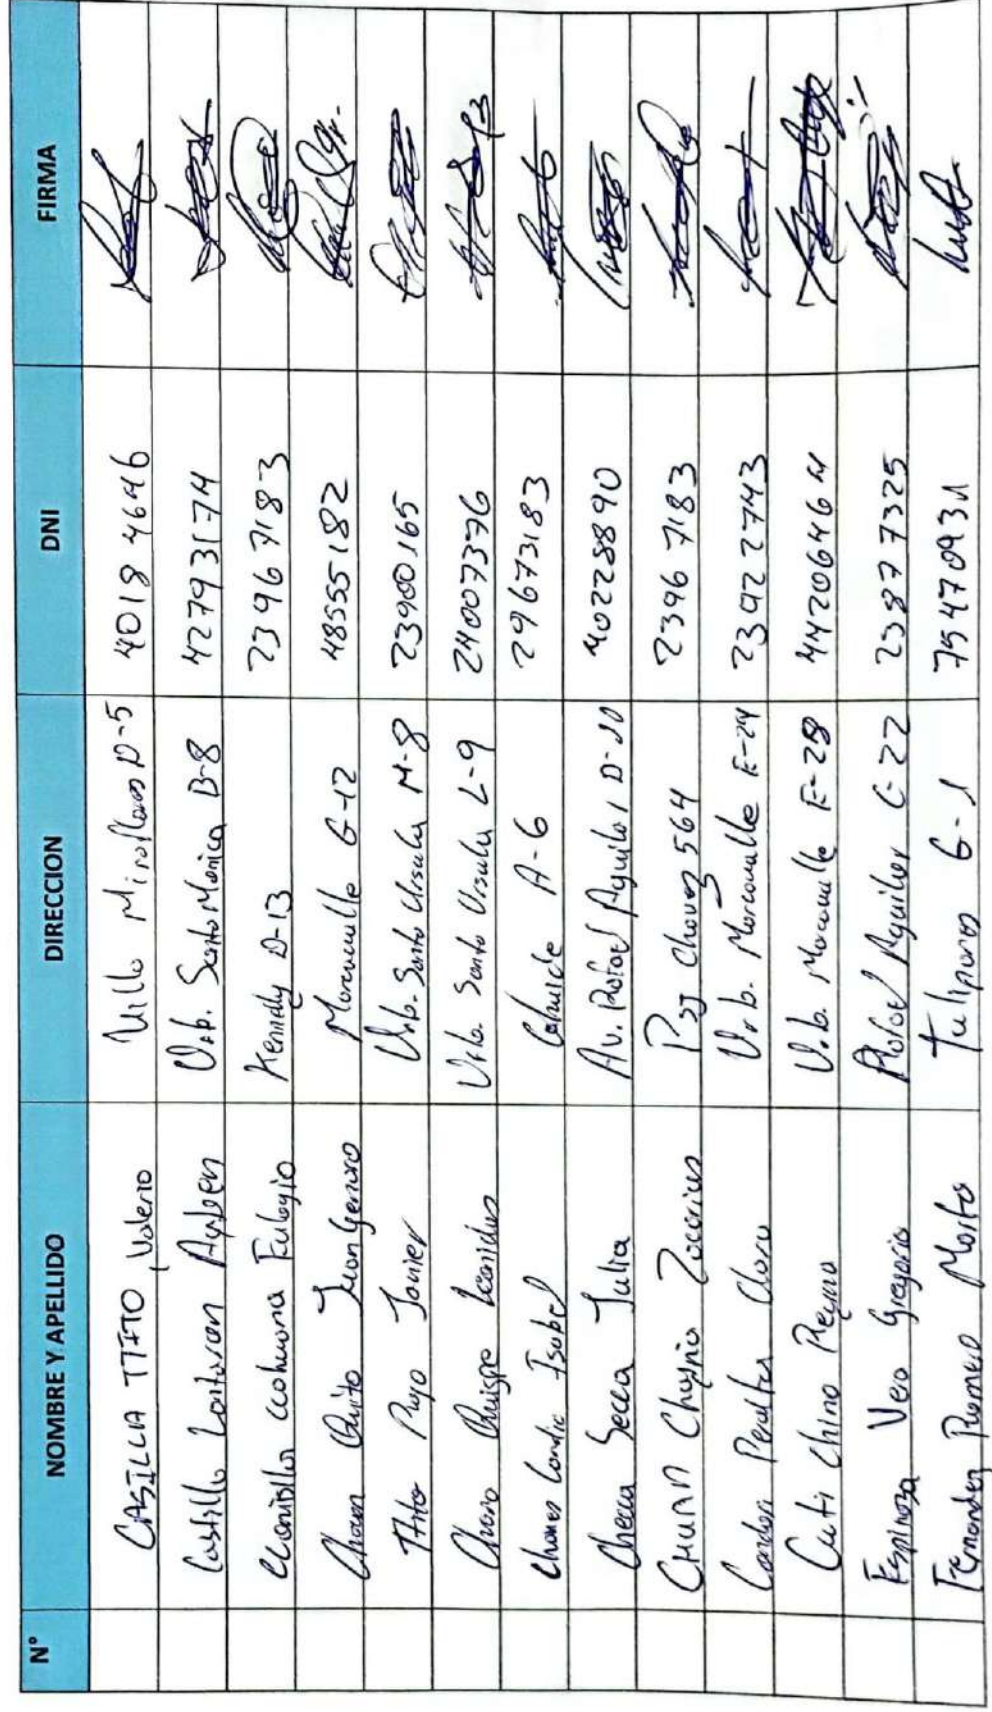 N° NOMBRE Y APELLIDO DIRECCION DNI FIRMA
CASILLA TTITO Valerio Villa Miraflores D-5 4018 4646
Castillo Ayben Urb. Santa Monica B-8 42793174
ccahuana Eulogio Kennedy D-13 2396 7183
Quito Juan Genaro Marcavalle G-12 48555182
Ttito Puyo Javier Urb. Santa Ursula M-8 23900165
Quispe Leonidas Urb. Santa Ursula L-9 24007376
Isabel Cahuide A-6 29673183
Checca Secca Julia Av. Rafael Aguilar D-10 40228890
CHUAN Zacarias Psj Chavez 564 2396 7183
Condori Peralta Clara Urb. Marcavalle E-24 2392 2743
Cuti Chino Regina Urb. Marcavalle E-28 44206464
Espinoza Vera Gregorio Rafael Aguilar C-22 23877325
Fernandez Romero Marta Tulipanes G-1 75470931